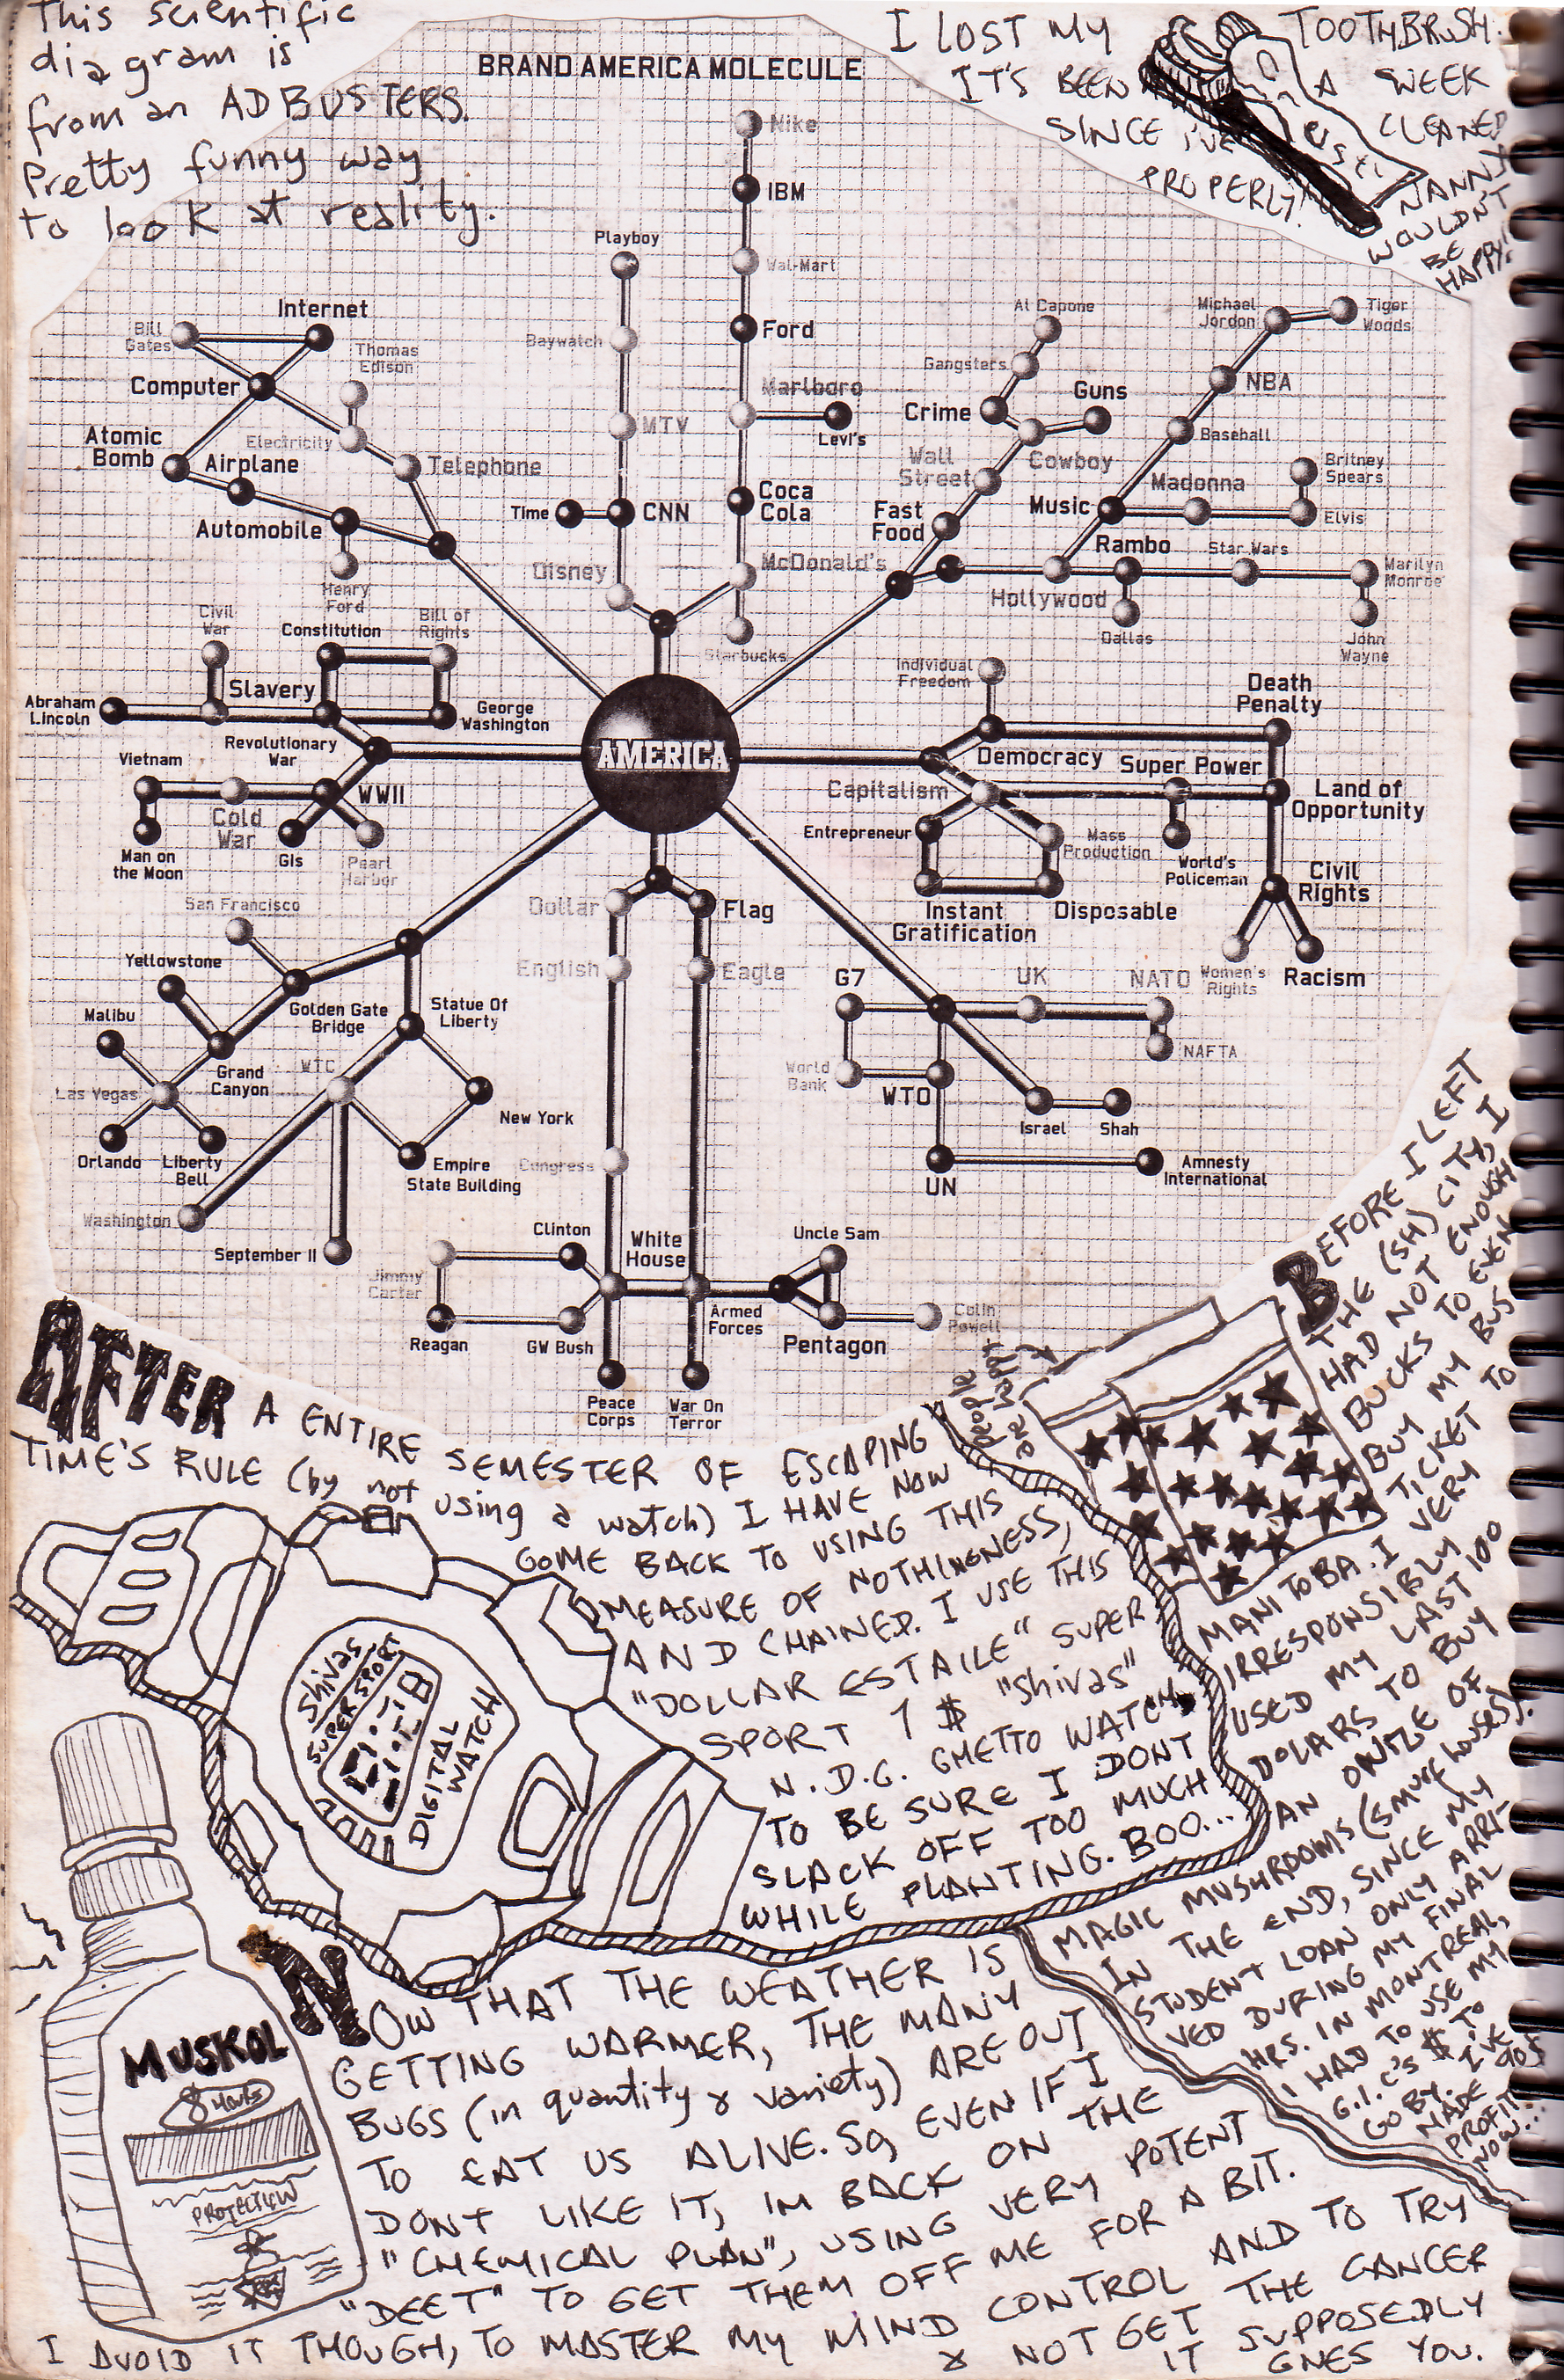 This scientific
diagram is
from an ADBUSTERS.
Pretty funny way
to look at reality.
I LOST MY TOOTHBRUSH.
IT'S BEEN A WEEK
SINCE I'VE CLEANED
PROPERLY!
NANNY
WOULDN'T
BE
HAPPY!
BRAND AMERICA MOLECULE
Nike
IBM
Wal-Mart
Ford
Marlboro
Levi's
Coca
Cola
McDonald's
Starbucks
Playboy
Baywatch
MTV
Time
CNN
Disney
Internet
Bill
Gates
Thomas
Edison
Computer
Atomic
Bomb
Electricity
Airplane
Telephone
Automobile
Henry
Ford
Al Capone
Gangsters
Guns
Crime
Cowboy
Wall
Street
Fast
Food
Michael
Jordon
Tiger
Woods
NBA
Baseball
Madonna
Britney
Spears
Music
Elvis
Rambo
Star Wars
Marilyn
Monroe
Hollywood
Dallas
John
Wayne
Civil
War
Constitution
Bill of
Rights
Slavery
Abraham
Lincoln
George
Washington
Revolutionary
War
Vietnam
WWII
Cold
War
Man on
the Moon
GIs
Pearl
Harbor
AMERICA
Individual
Freedom
Death
Penalty
Democracy
Super Power
Capitalism
Land of
Opportunity
Entrepreneur
Mass
Production
World's
Policeman
Civil
Rights
Instant
Gratification
Disposable
Women's
Rights
Racism
San Francisco
Yellowstone
Malibu
Golden Gate
Bridge
Statue Of
Liberty
Grand
Canyon
WTC
Las Vegas
New York
Orlando
Liberty
Bell
Empire
State Building
Washington
September 11
Dollar
Flag
English
Eagle
Congress
G7
UK
NATO
NAFTA
World
Bank
WTO
Israel
Shah
UN
Amnesty
International
Clinton
White
House
Uncle Sam
Jimmy
Carter
Reagan
GW Bush
Armed
Forces
Pentagon
Colin
Powell
Peace
Corps
War On
Terror
AFTER A ENTIRE SEMESTER OF ESCAPING
TIME'S RULE (by not using a watch) I HAVE NOW
COME BACK TO USING THIS
MEASURE OF NOTHINGNESS,
AND CHAINED. I USE THIS
"DOLLAR ESTAILE" SUPER
SPORT 1 $ "Shivas"
N.D.G. GHETTO WATCH
TO BE SURE I DONT
SLACK OFF TOO MUCH
WHILE PLANTING. BOO...
Shivas
SUPER SPORT
DIGITAL
WATCH
BEFORE I LEFT
THE (SH) CITY, I
HAD NOT ENOUGH
BUCKS TO EVEN
BUY MY BUS
TICKET TO
MANITOBA. I VERY
IRRESPONSIBLY
USED MY LAST 100
DOLARS TO BUY
AN ONIZE OF
MAGIC MUSHROOMS (smurf houses)!
IN THE END, SINCE MY
STUDENT LOAN ONLY ARRI-
VED DURING MY FINAL
HRS. IN MONTREAL,
I HAD TO USE MY
G.I.C's $ TO
GO BY. I'VE
MADE 90$
PROFIT
NOW...
MUSKOL
8 HOURS
PROTECTION
NOW THAT THE WEATHER IS
GETTING WARMER, THE MANY
BUGS (in quantity & variety) ARE OUT
TO EAT US ALIVE. SO, EVEN IF I
DONT LIKE IT, IM BACK ON THE
"CHEMICAL PLAN", USING VERY POTENT
"DEET" TO GET THEM OFF ME FOR A BIT.
I AVOID IT THOUGH, TO MASTER MY MIND CONTROL AND TO TRY
& NOT GET THE CANCER
IT SUPPOSEDLY
GIVES YOU.